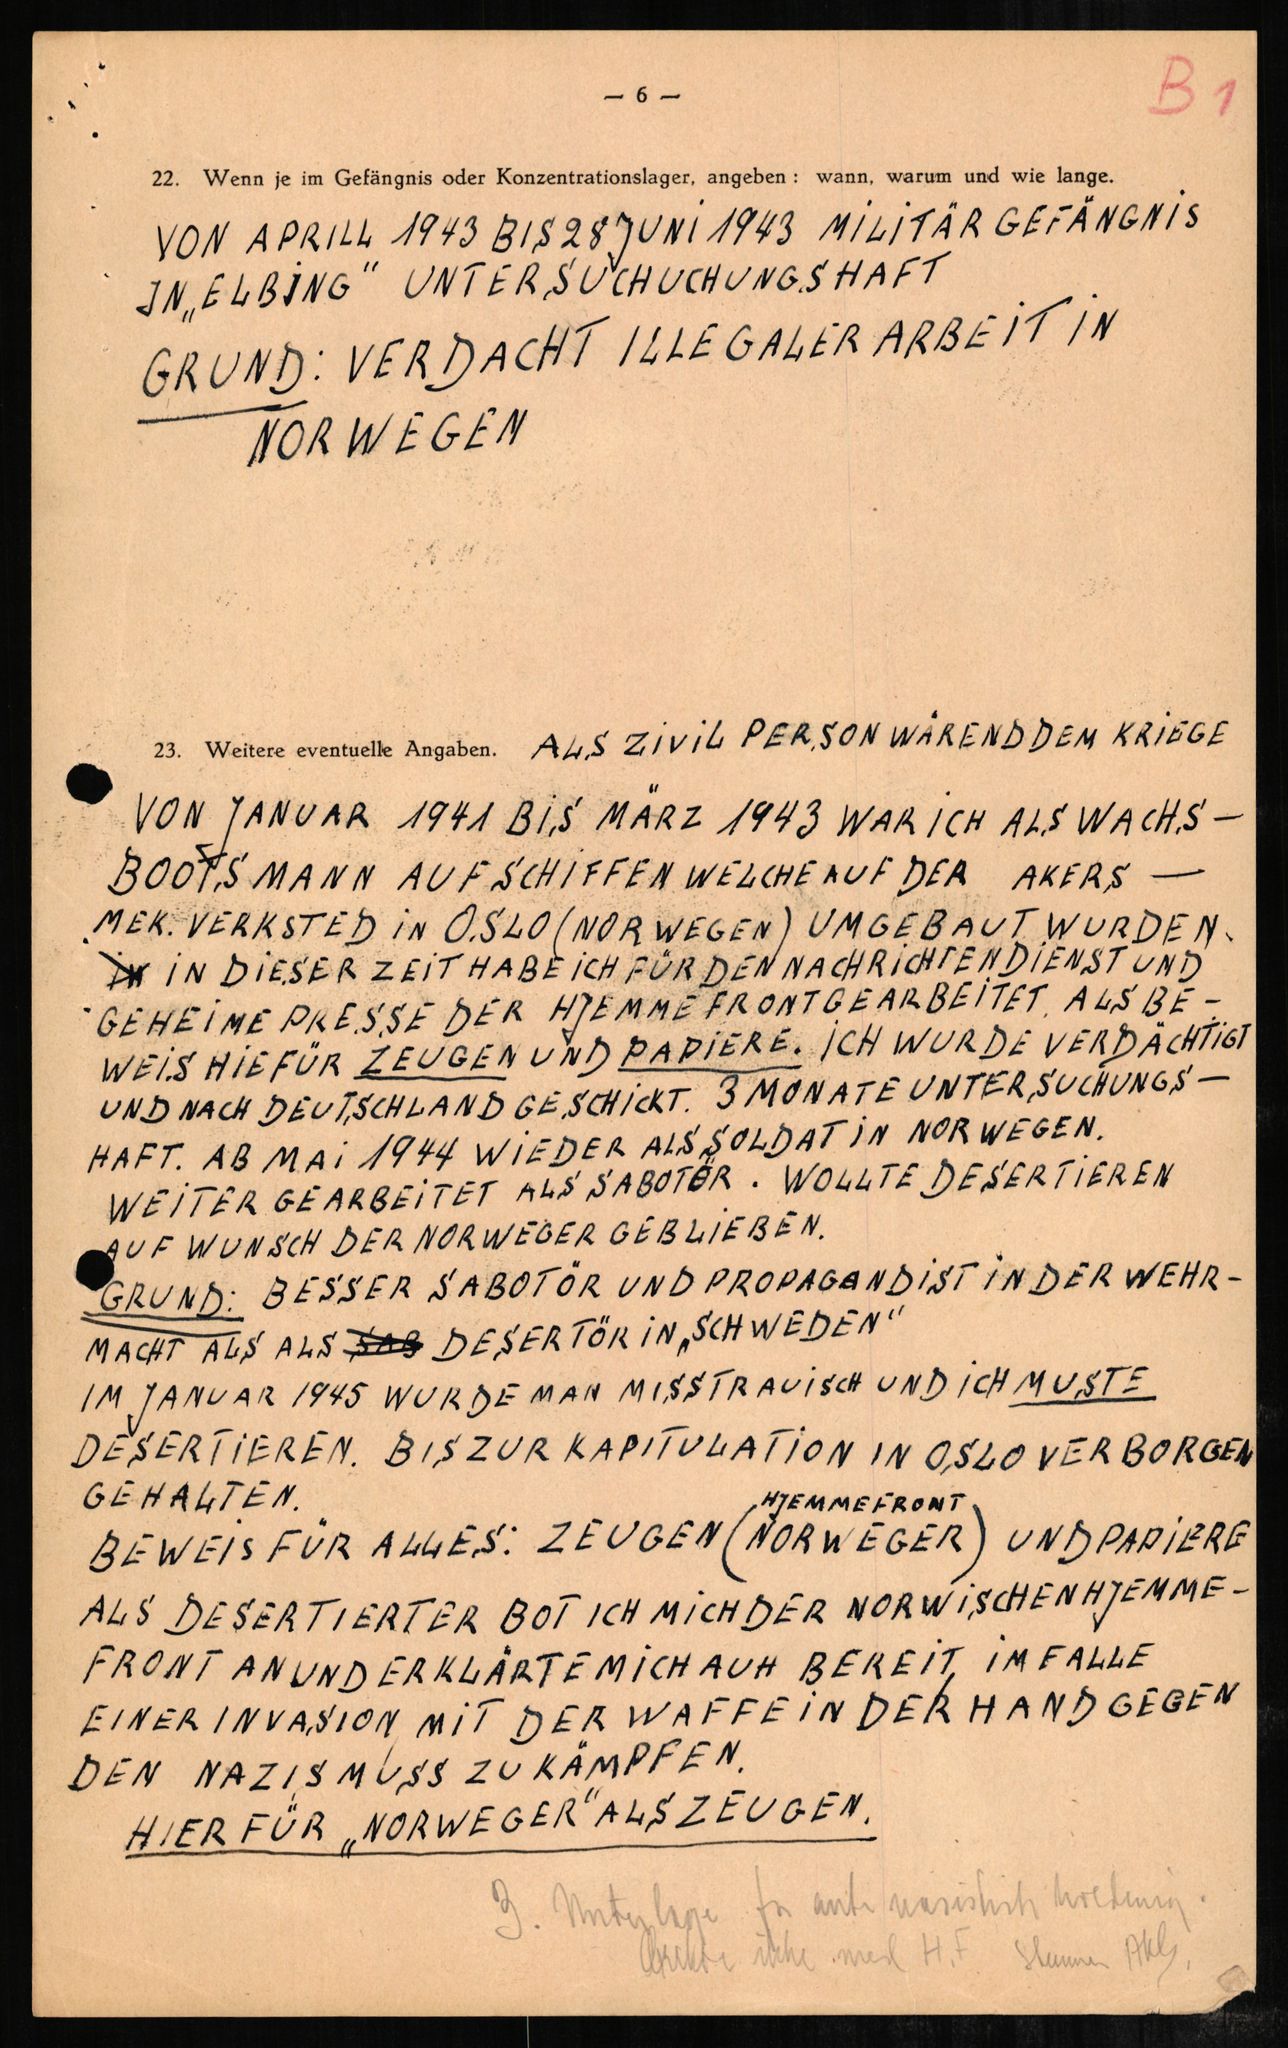 — 6 —
B 1
22. Wenn je im Gefängnis oder Konzentrationslager, angeben: wann, warum und wie lange.
VON APRILL 1943 BIS 28 JUNI 1943 MILITÄRGEFÄNGNIS
IN „ELBING" UNTERSUCHUCHUNGSHAFT
GRUND: VERDACHT ILLEGALER ARBEIT IN
NORWEGEN
23. Weitere eventuelle Angaben. ALS ZIVIL PERSON WÄREND DEM KRIEGE
VON JANUAR 1941 BIS MÄRZ 1943 WAR ICH ALS WACHS-
BOOTSMANN AUF SCHIFFEN WELCHE AUF DER AKERS —
MEK. VERKSTED IN OSLO (NORWEGEN) UMGEBAUT WURDEN.
IN IN DIESER ZEIT HABE ICH FÜR DEN NACHRICHTENDIENST UND
GEHEIME PRESSE DER HJEMMEFRONT GEARBEITET. ALS BE-
WEIS HIEFÜR ZEUGEN UND PAPIERE. ICH WURDE VERDÄCHTIGT
UND NACH DEUTSCHLAND GESCHICKT. 3 MONATE UNTERSUCHUNGS-
HAFT. AB MAI 1944 WIEDER ALS SOLDAT IN NORWEGEN.
WEITER GEARBEITET ALS SABOTÖR. WOLLTE DESERTIEREN
AUF WUNSCH DER NORWEGER GEBLIEBEN.
GRUND: BESSER SABOTÖR UND PROPAGANDIST IN DER WEHR-
MACHT ALS ALS SAB DESERTÖR IN „SCHWEDEN"
IM JANUAR 1945 WURDE MAN MISSTRAUISCH UND ICH MUSTE
DESERTIEREN. BIS ZUR KAPITULATION IN OSLO VERBORGEN
GEHALTEN.
HJEMMEFRONT
BEWEIS FÜR ALLES: ZEUGEN (NORWEGER) UND PAPIERE
ALS DESERTIERTER BOT ICH MICH DER NORWISCHEN HJEMME-
FRONT AN UND ERKLÄRTE MICH AUH BEREIT, IM FALLE
EINER INVASION, MIT DER WAFFE IN DER HAND GEGEN
DEN NAZISMUSS ZU KÄMPFEN.
HIERFÜR „NORWEGER" ALS ZEUGEN.
med H.F.